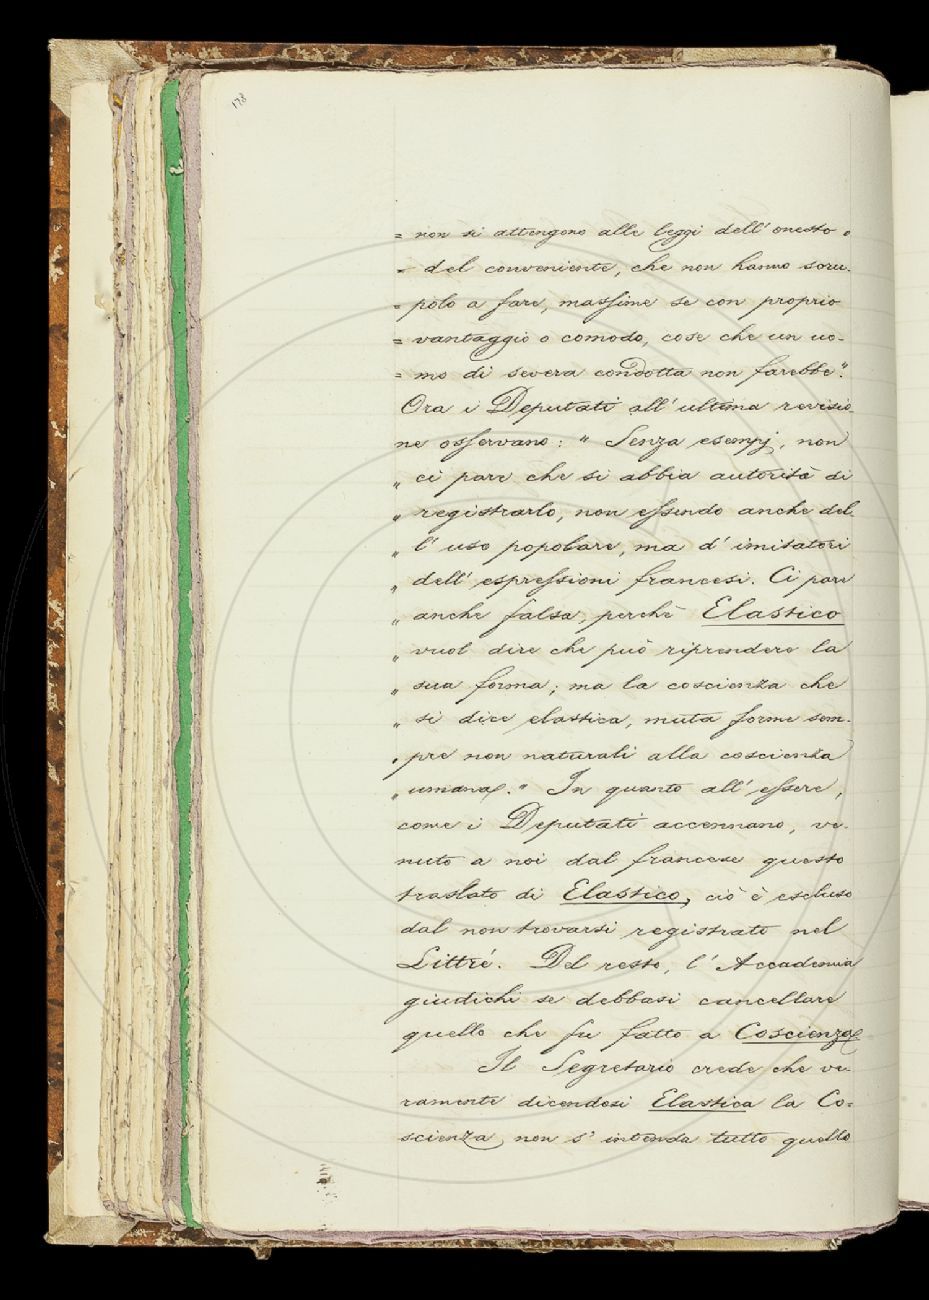 178
= non si attengono alle leggi dell' onesto o
= del conveniente, che non hanno scru-
= polo a fare, massime se con proprio
= vantaggio o comodo, cose che un uo-
= mo di severa condotta non farebbe".
Ora i Deputati all' ultima revisio-
ne osservano: " Senza esempj, non
" ci pare che si abbia autorità di
" registrarlo, non essendo anche del-
" l' uso popolare, ma d' imitatori
" dell' espressioni francesi. Ci pare
" anche falsa, perchè Elastico
" vuol dire che può riprendere la
" sua forma; ma la coscienza che
" si dice elastica, muta forme sem-
" pre non naturali alla coscienza
" umana." In quanto all' essere,
come i Deputati accennano, ve-
nuto a noi dal francese questo
traslato di Elastico, ciò è escluso
dal non trovarsi registrato nel
Littré. Del resto, l' Accademia
giudichi se debbasi cancellare
quello che fu fatto a Coscienza.
Il Segretario crede che ve-
ramente dicendosi Elastica la Co-
scienza, non s' intenda tutto quello